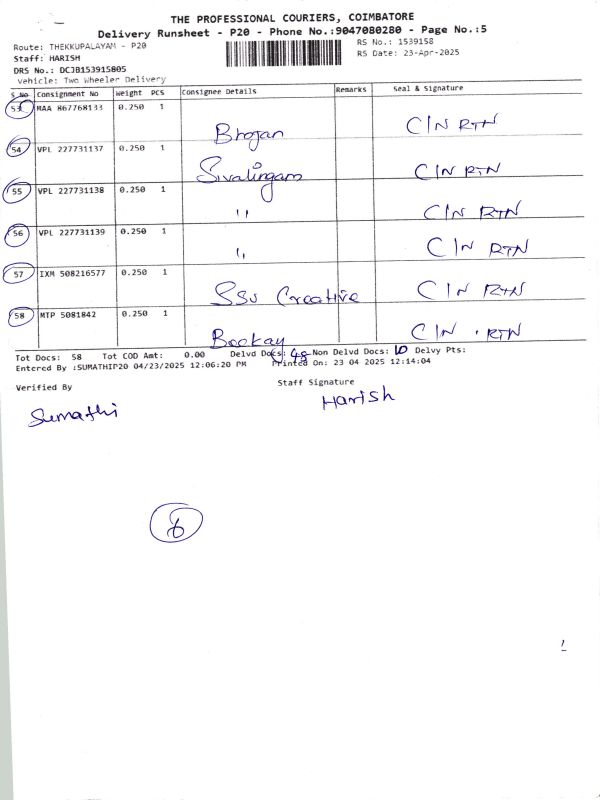 THE PROFESSIONAL COURIERS, COIMBATORE
Delivery Runsheet - P20 - Phone No.:9047080280 - Page No.:5
Route: THEKKUPALAYAM - P20
RS No.: 1539158
Staff: HARISH
RS Date: 23-Apr-2025
DRS No.: DCJB153915805
Vehicle: Two Wheeler Delivery
S.No Consignment No Weight PCS Consignee Details Remarks Seal & Signature
53 MAA 867768133 0.250 1
Bhojan C/N RTN
54 VPL 227731137 0.250 1
Sivalingam C/N RTN
55 VPL 227731138 0.250 1
" C/N RTN
56 VPL 227731139 0.250 1
" C/N RTN
57 IXM 508216577 0.250 1
SSV Creative C/N RTN
58 MTP 5081842 0.250 1
Bookay C/N RTN
Tot Docs: 58 Tot COD Amt: 0.00 Delvd Docs: 48 Non Delvd Docs: 10 Delvy Pts:
Entered By :SUMATHIP20 04/23/2025 12:06:20 PM Printed On: 23 04 2025 12:14:04
Verified By Staff Signature
Sumathi Harish